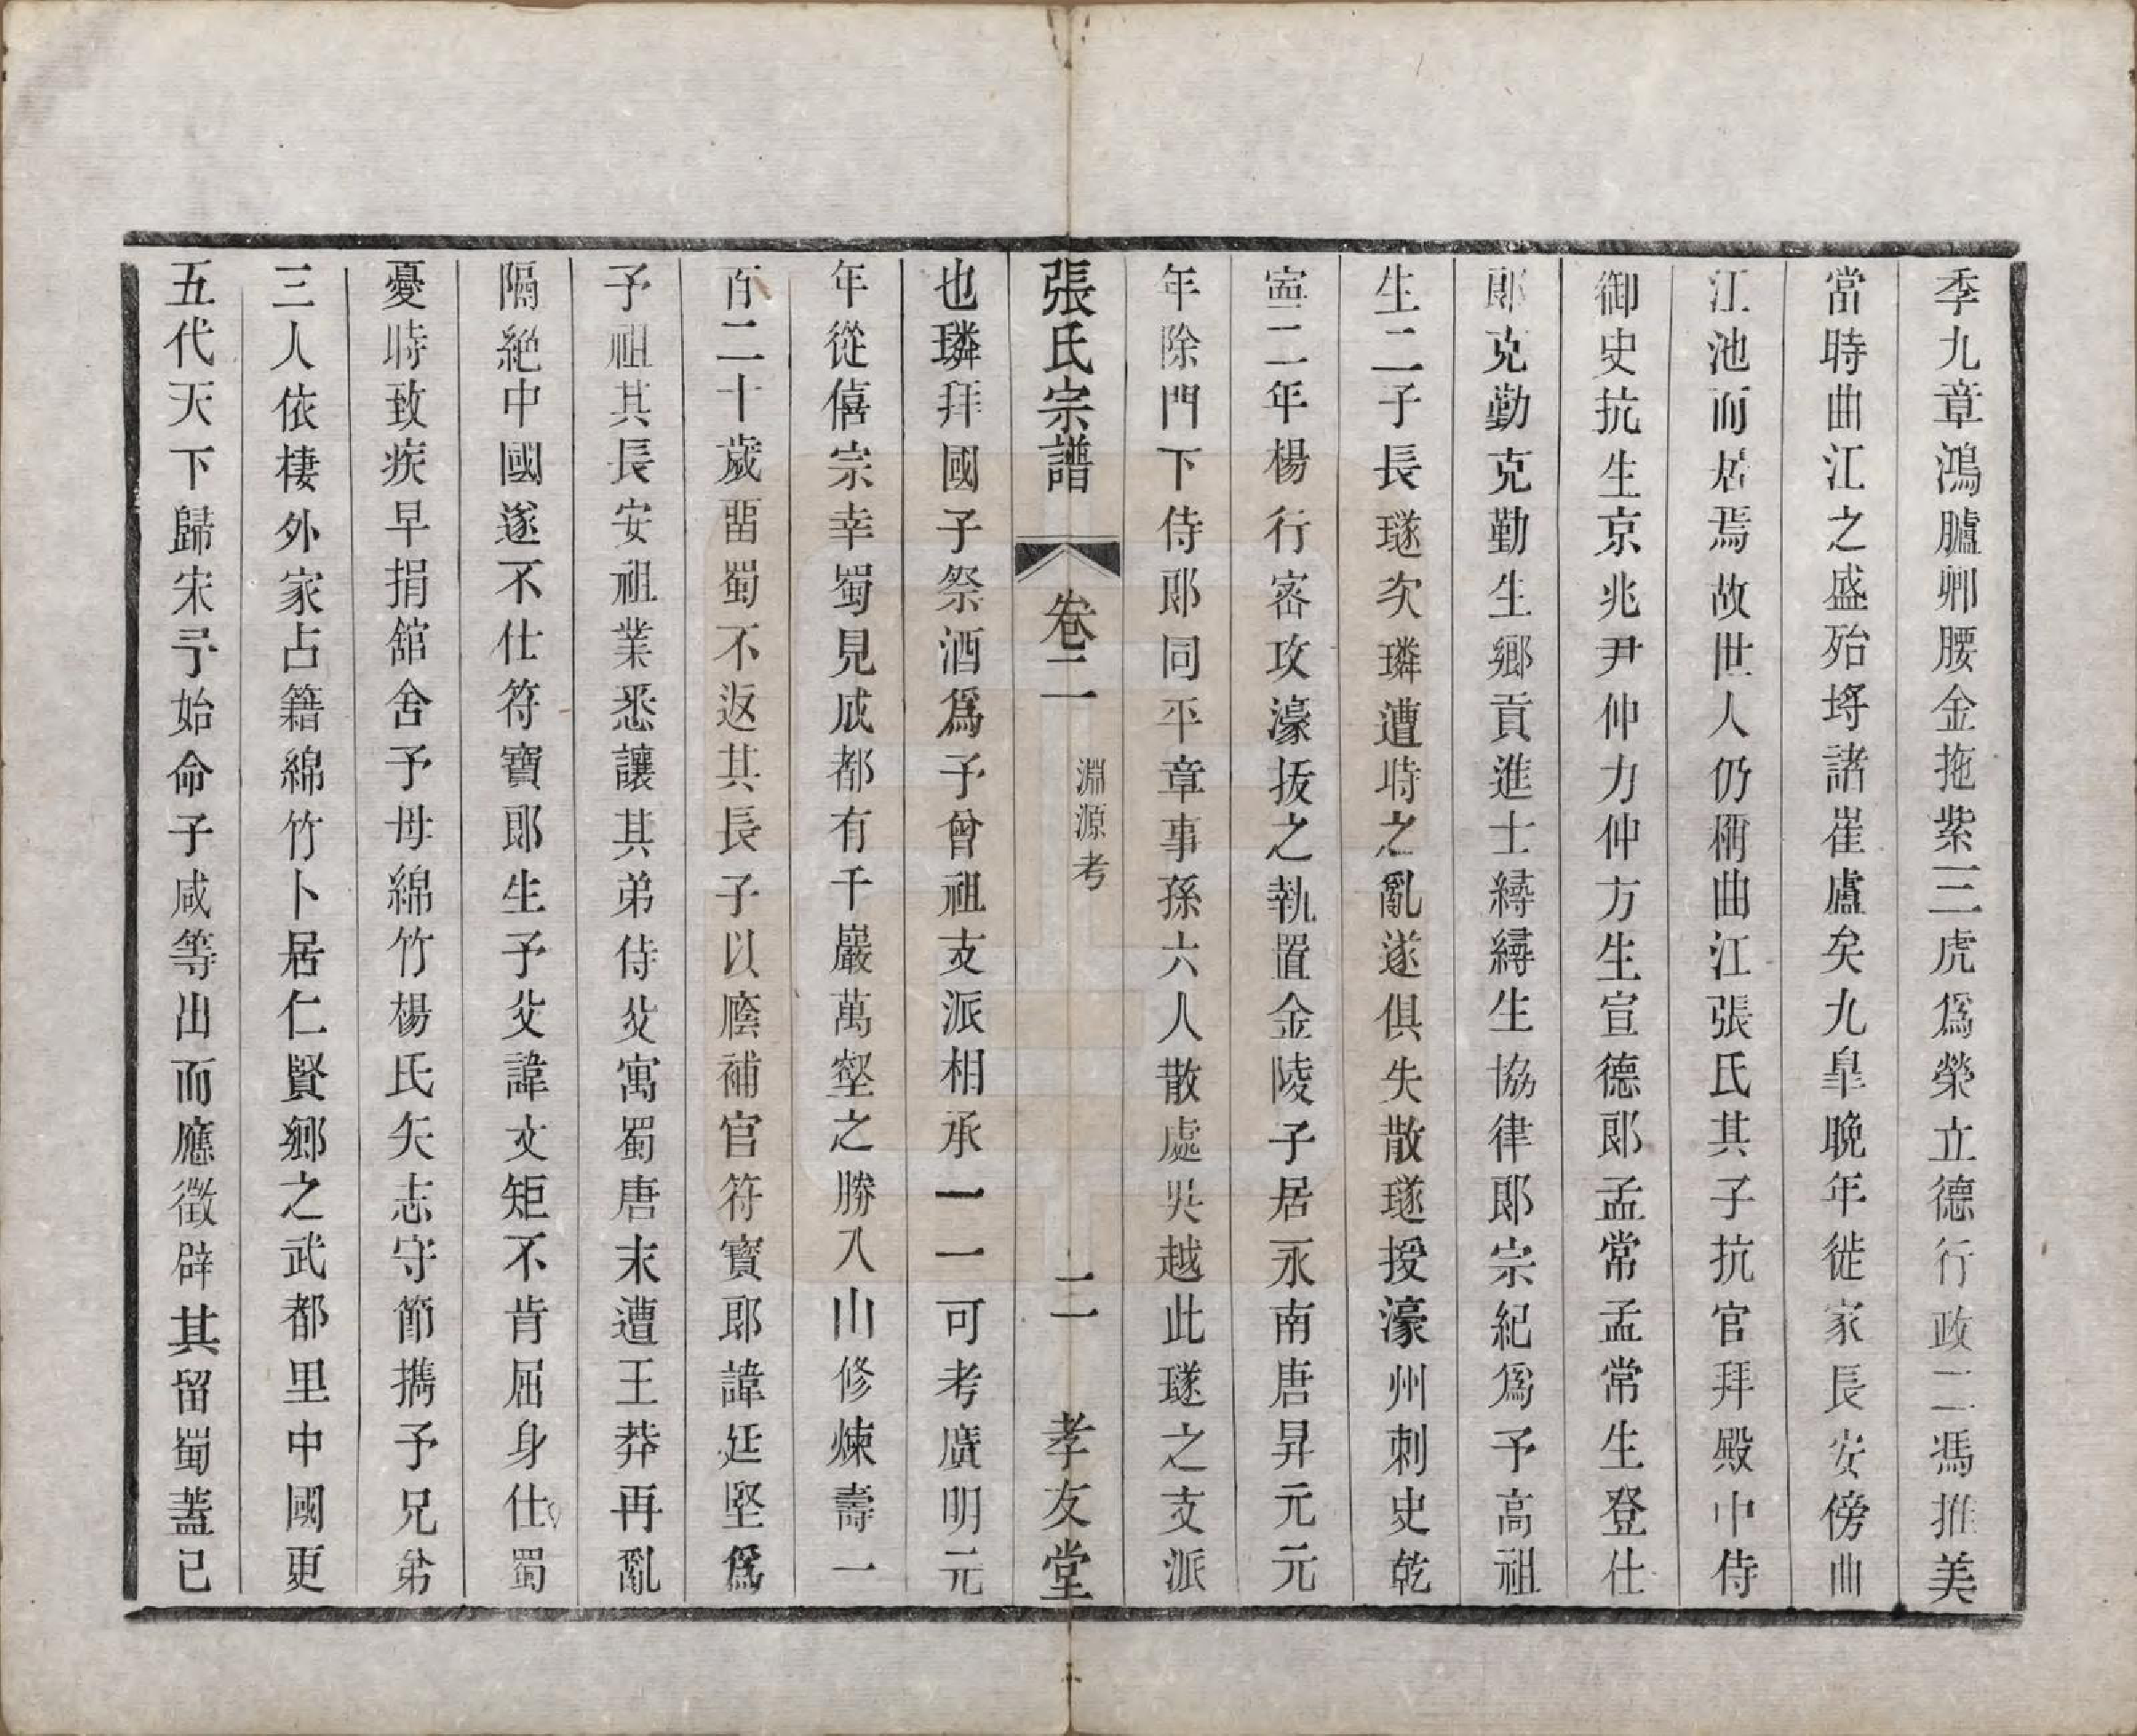 季九章鴻臚卿腰金拖紫三虎爲榮立德行政二馮推美
當時曲江之盛殆埒諸崔盧矣九皐晚年徙家長安傍曲
江池而居焉故世人仍稱曲江張氏其子抗官拜殿中侍
御史抗生京兆尹仲力仲方生宣德郎孟常孟常生登仕
郎克勤克勤生鄉貢進士綉綉生協律郎宗紀爲予高祖
生二子長璲次璘遭時之亂遂俱失散璲授濠州刺史乾
寧二年楊行密攻濠拔之執置金陵子居永南唐昇元元
年除門下侍郎同平章事孫六人散處吳越此璲之支派
張氏宗譜 卷二 淵源考 二 孝友堂
也璘拜國子祭酒爲予曾祖支派相承一一可考廣明元
年從僖宗幸蜀見成都有千巖萬壑之勝入山修煉壽一
百二十歲畱蜀不返其長子以廕補官符寶郎諱廷堅爲
予祖其長安祖業悉讓其弟侍父寓蜀唐末遭王莽再亂
隔絕中國遂不仕符寶郎生予父諱文矩不肯屈身仕蜀
憂時致疾早捐館舍予母綿竹楊氏矢志守節攜予兄弟
三人依棲外家占籍綿竹卜居仁賢鄉之武都里中國更
五代天下歸宋予始命子咸等出而應徵辟其留蜀蓋已